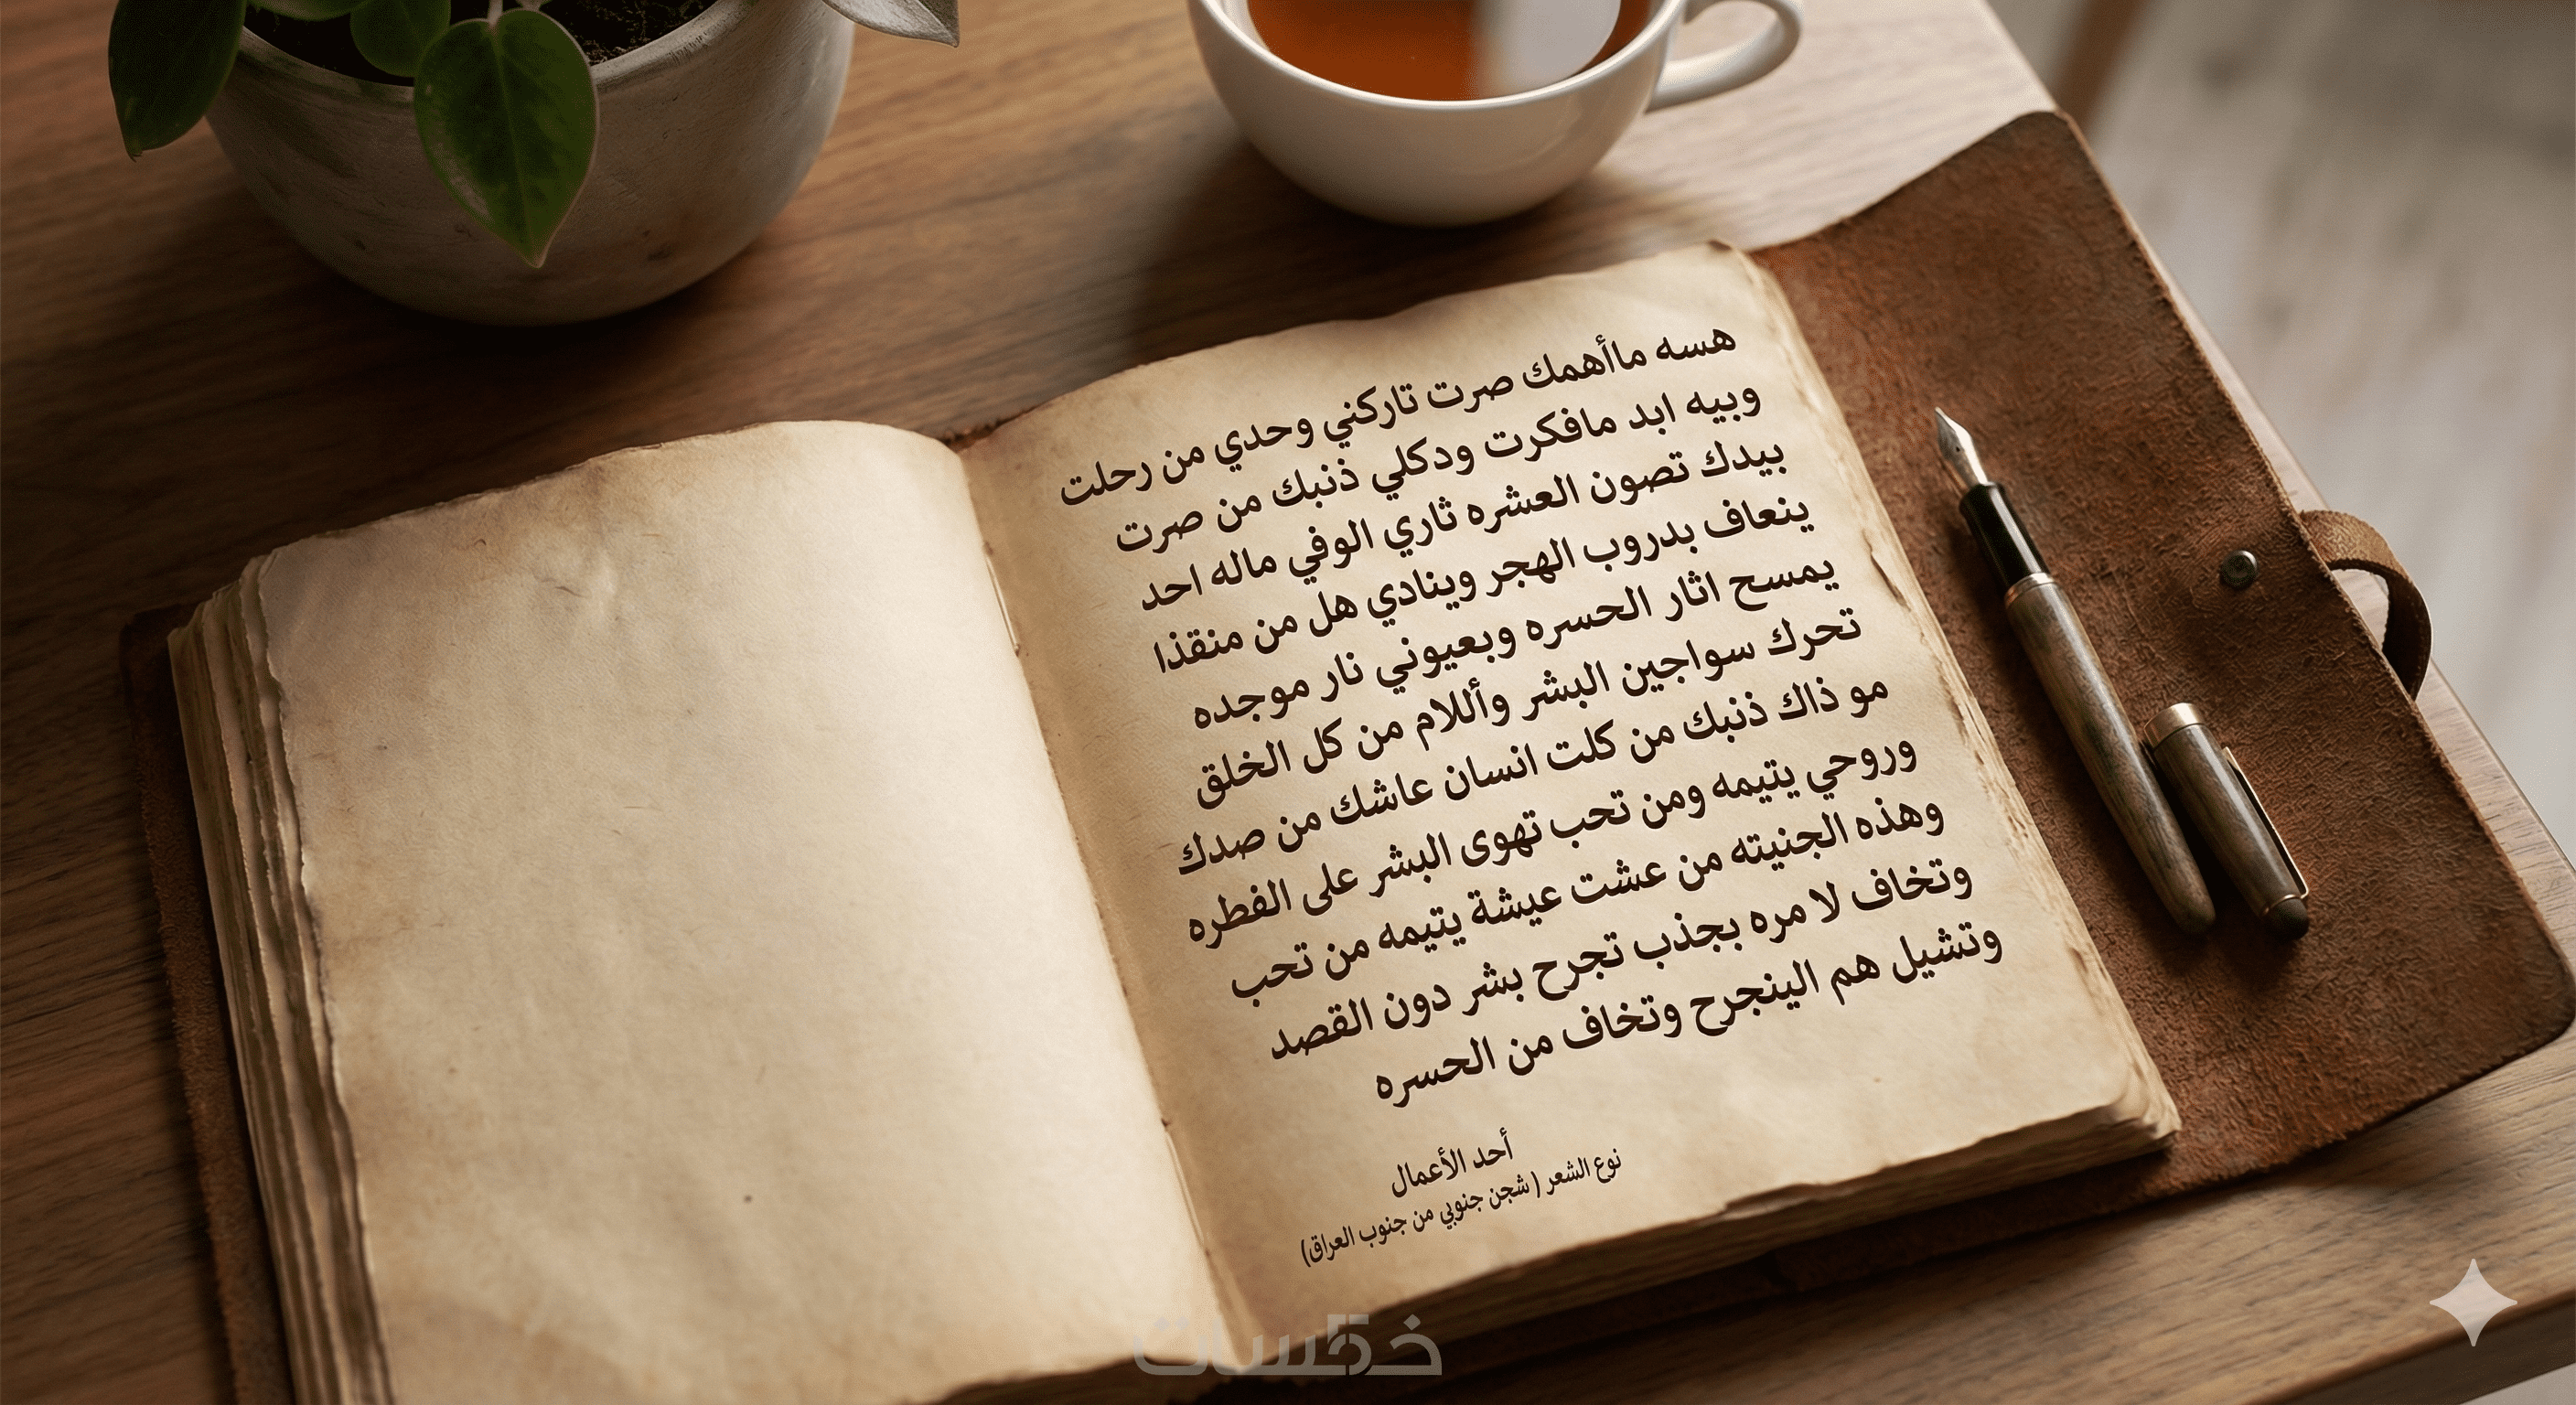 هسه ماأهمك صرت تاركني وحدي من رحلت
وبيه ابد مافكرت ودكلي ذنبك من صرت
بيدك تصون العشره ثاري الوفي ماله احد
ينعاف بدروب الهجر وينادي هل من منقذا
يمسح اثار الحسره وبعيوني نار موجده
تحرك سواجين البشر وأللام من كل الخلق
مو ذاك ذنبك من كلت انسان عاشك من صدك
وروحي يتيمه ومن تحب تهوى البشر على الفطره
وهذه الجنيته من عشت عيشة يتيمه من تحب
وتخاف لا مره بجذب تجرح بشر دون القصد
وتشيل هم الينجرح وتخاف من الحسره
أحد الأعمال
نوع الشعر ( شجن جنوبي من جنوب العراق)
خمسات